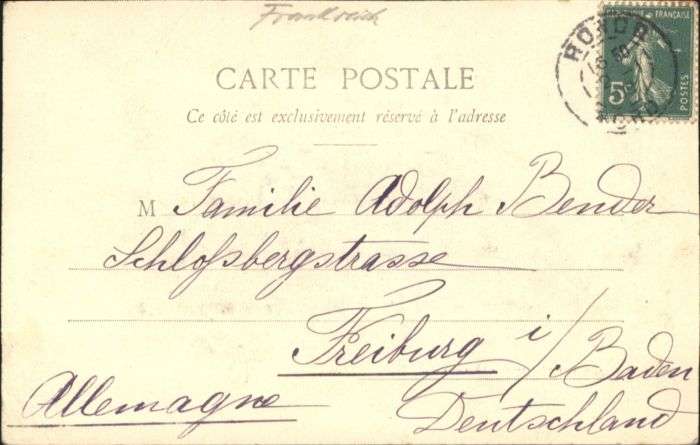 Frankreich
RÉPUBLIQUE FRANÇAISE
5c
POSTES
CARTE POSTALE
Ce côté est exclusivement réservé à l'adresse
M Familie Adolph Bender
Schloßbergstrasse
Freiburg i/Baden
Allemagne
Deutschland